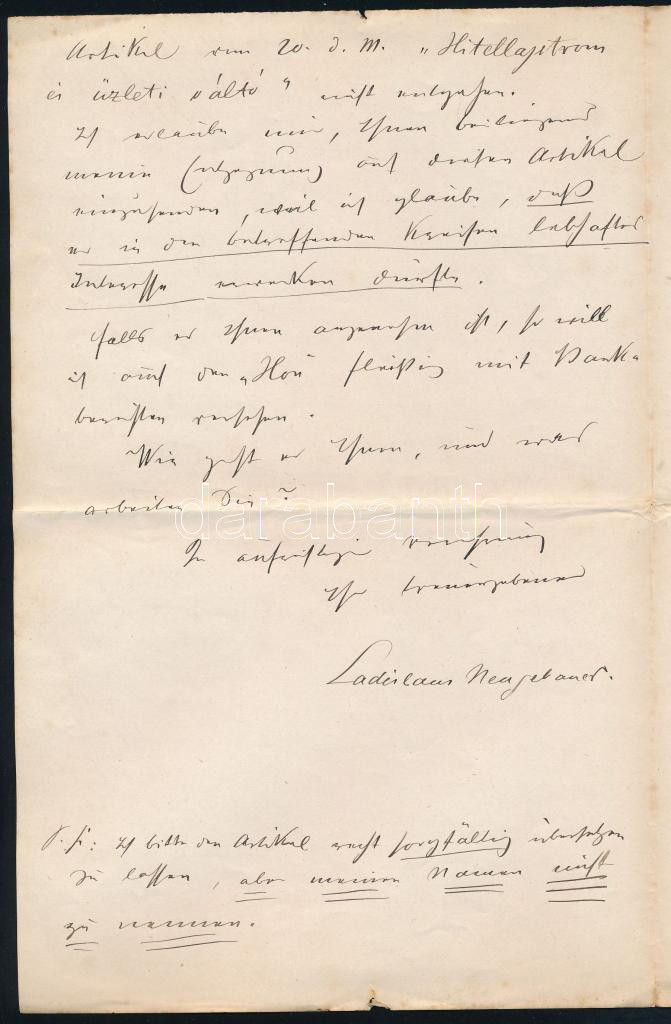 Artikel vom 20. d. M. „Hitellajstrom
és üzleti váltó“ nicht entgehen.
Ich erlaube mir, Ihnen beiliegend
meine Entgegnung auf diesen Artikel
einzusenden, weil ich glaube, daß
er in den betreffenden Kreisen lebhaftes
Interesse erwecken dürfte.
Falls er Ihnen angenehm ist, so will
ich auch den „Hon fleißig mit
versehen.
Wie geht es Ihnen, und was
arbeiten Sie?
In aufrichtiger Verehrung
Ihr treuergebener
Ladislaus Neugebauer.
P. S.: Ich bitte den Artikel recht sorgfältig übersetzen
zu lassen, aber meinen Namen nicht
zu nennen.
darabanth